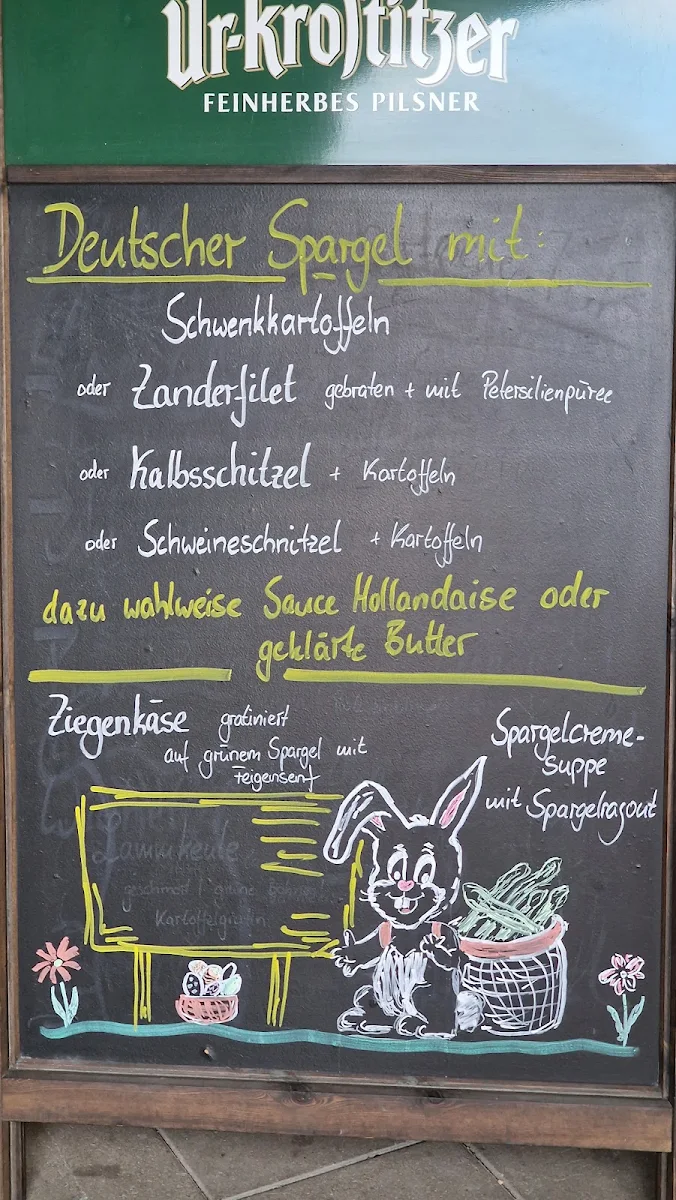 Ur-Krostitzer
FEINHERBES PILSNER
Deutscher Spargel mit:
Schwenkkartoffeln
oder Zanderfilet gebraten + mit Petersilienpüree
oder Kalbsschitzel + Kartoffeln
oder Schweineschnitzel + Kartoffeln
dazu wahlweise Sauce Hollandaise oder
geklärte Butter
Ziegenkäse gratiniert
auf grünem Spargel mit
Feigensenf
Spargelcreme-
suppe
mit Spargelragout
Lammkeule
geschmort
Kartoffelgratin